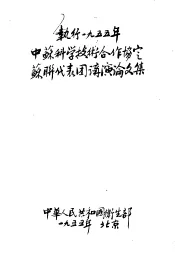 執行一九五五年
中蘇科学技術合作協定
蘇联代表团講演論文集
中華人民共和国衛生部
一九五五年 北京